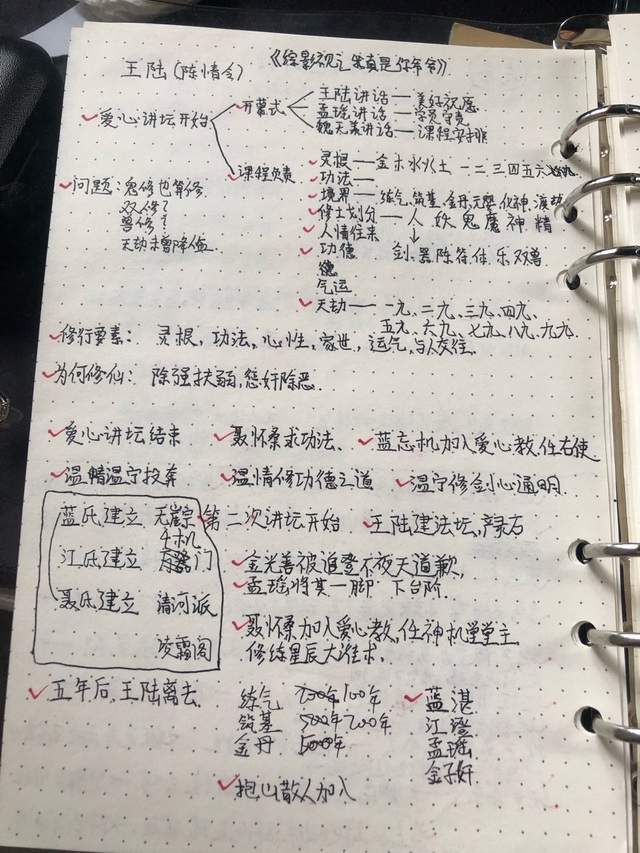 王陆(陈情令)
《综影视之朱真是你爷爷》
爱心讲坛开始
开幕式
王陆讲话——美好祝愿
孟瑶讲话——学员守责
魏无羡讲话——课程安排
课程负责
灵根——金木水火土 一二三四五六
功法——
境界——练气,筑基,金丹,元婴,化神,渡劫
修士划分——人 妖 鬼 魔 神 精
人情往来
剑 器 陈 符 体 乐 双 兽
功德
气运
天劫——一九、二九、三九、四九、
五九、六九、七九、八九、九九
问题:鬼修也算修
双修?
兽修?
天劫未曾降临
修行要素:灵根,功法,心性,家世,运气,与人交往.
为何修仙:除强扶弱,惩奸除恶.
爱心讲坛结束
聂怀桑求功法、
蓝忘机加入爱心教,任右使
温情温宁投奔
温情修功德之道
温宁修剑心通明
蓝氏建立 无崖宗
江氏建立 门
聂氏建立 清河派
凌霜阁
第二次讲坛开始
王陆建法坛,
金光善被迫登不夜天道歉,
孟瑶将其一脚下台阶.
聂怀桑加入爱心教,任神机堂堂主
修练星辰大淮术.
五年后,王陆离去
练气 200年 100年
筑基 500年 200年
金丹 500年
蓝湛
江澄
孟瑶
金子轩
抱山散人加入